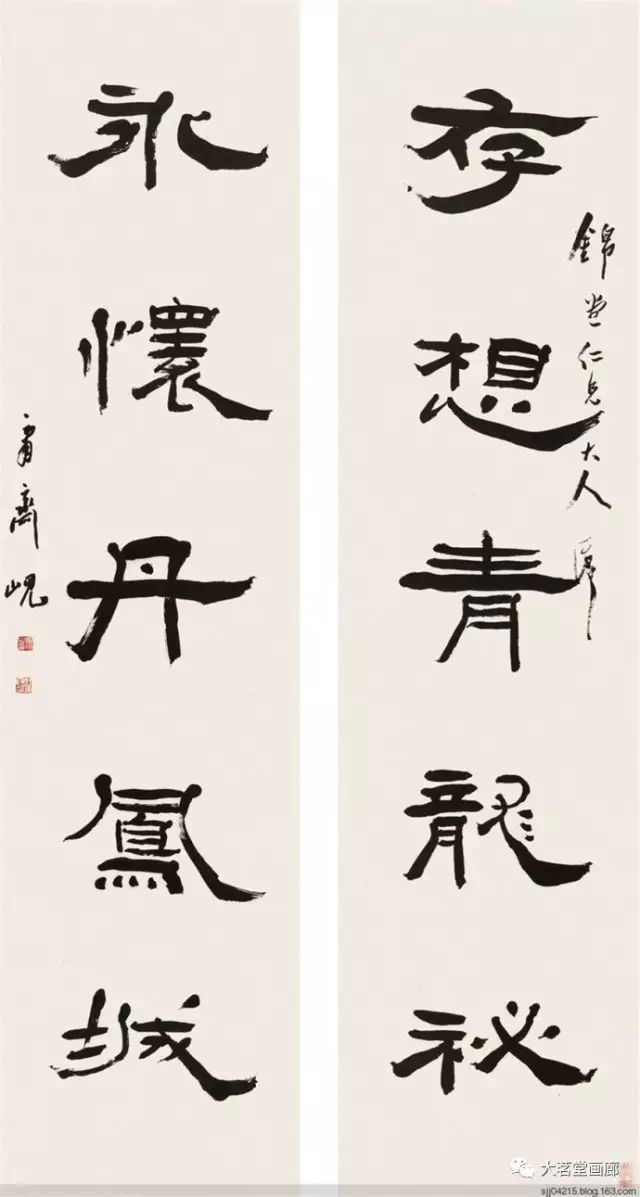 錦堂仁兄大人
存想青龍祕
永懷丹鳳城
大茗堂画廊
sjj04215.blog.163.com